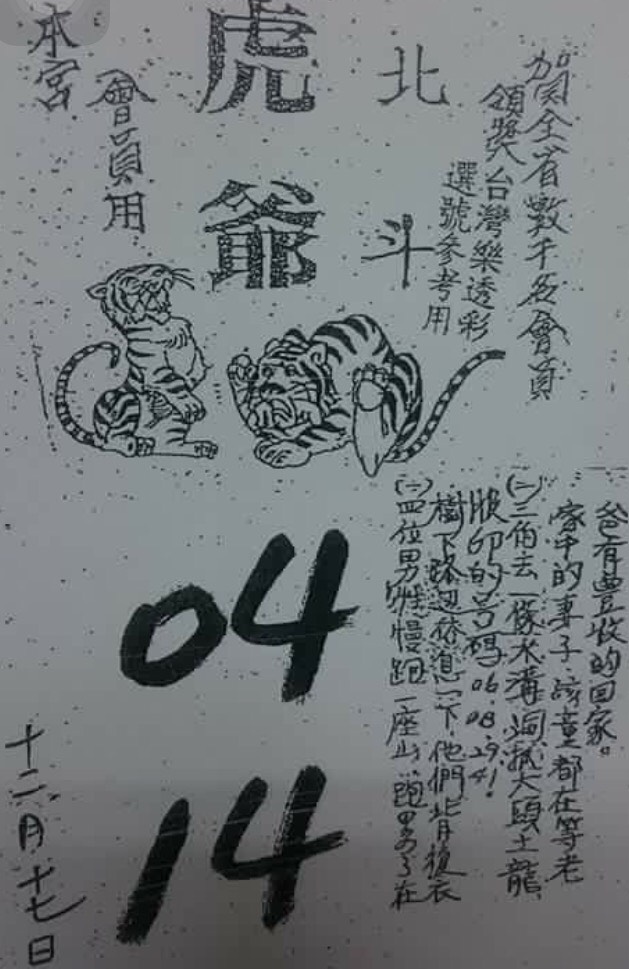 賀全省數千名會員
領獎台灣樂透彩
選號參考用
北斗
虎爺
會員用
本宮
(一)四位男性慢跑一座山、跑累了在
樹下路邊休息一下,他們背後衣
服印的号碼06.08.29.41.
(二)三伯去一條水溝洞抓大頭土龍
家中的妻子、孩童都在等老
爸有豐收的回家。
04
14
十二月十七日